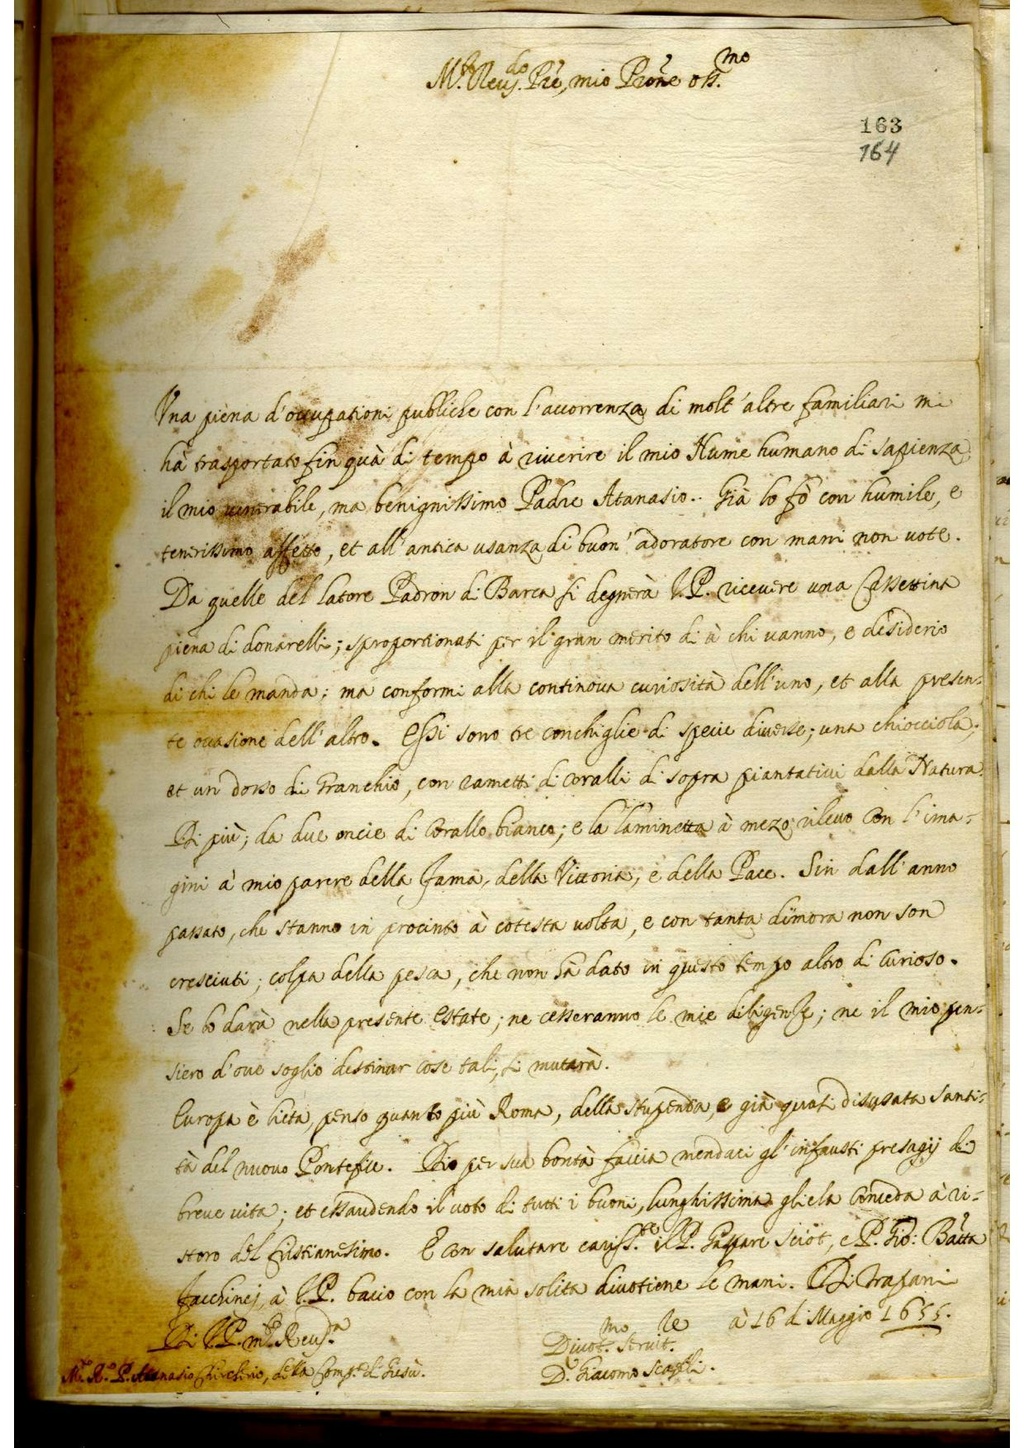 M.to Reu.do Pre, mio Prone oss.mo
163
164
Vna piena d'occupationi publiche con l'accorrenza di molt'altre familiari mi
hà trasportato fin quà di tempo à riuerire il mio Nume humano di sapienza,
il mio venerabile, ma benignissimo Padre Atanasio. Già lo fò con humile, e
tenerissimo affetto, et all'antica usanza di buon'adoratore con mani non vote.
Da quelle del latore Padron di Barca si degnerà V.P. riceuere una Cassettina
piena di donarelli; sproportionati per il gran merito di à chi uanno, e desiderio
di chi le manda; ma conformi alla continoua curiosità dell'uno, et alla presen-
te occasione dell'altro. Essi sono tre conchiglie di specie diuerse; una chiocciola,
et un dosso di Granchio, con rametti di coralli di sopra piantatiui dalla Natura.
Di più; da due oncie di Corallo bianco; e la laminetta à mezo rileuo con l'ima-
gini à mio parere della Fama, della Vittoria, e della Pace. Sin dall'anno
passato, che stanno in procinto à cotesta uolta, e con tanta dimora non son
cresciuti; colpa della pesca, che non hà dato in questo tempo altro di curioso.
Se lo darà nella presente estate; ne cesseranno le mie diligenze; ne il mio pen-
siero d'oue soglio destinar cose tali, si mutarà.
Europa è lieta, penso quanto più Roma, della stupenda, e già quasi disusata santi-
tà del nuouo Pontefice. Dio per sua bontà faccia mendaci gl'infausti presagij di
breue uita; et essaudendo il uoto di tutti i buoni, lunghissima gliela conceda à ri-
storo del Cristianesimo. E con salutare cariss.te il P. Gaspare Sciot, e P. Gio: Batta
Jacchinej, à V.P. bacio con la mia solita diuotione le mani. Di Trapani
à 16 di Maggio 1655.
Di V.P. m.to Reu.da
Diuot.mo Seruit.re
M.to R.o P. Atanasio Chircherio, della Comp.a di Giesù.
D. Giacomo